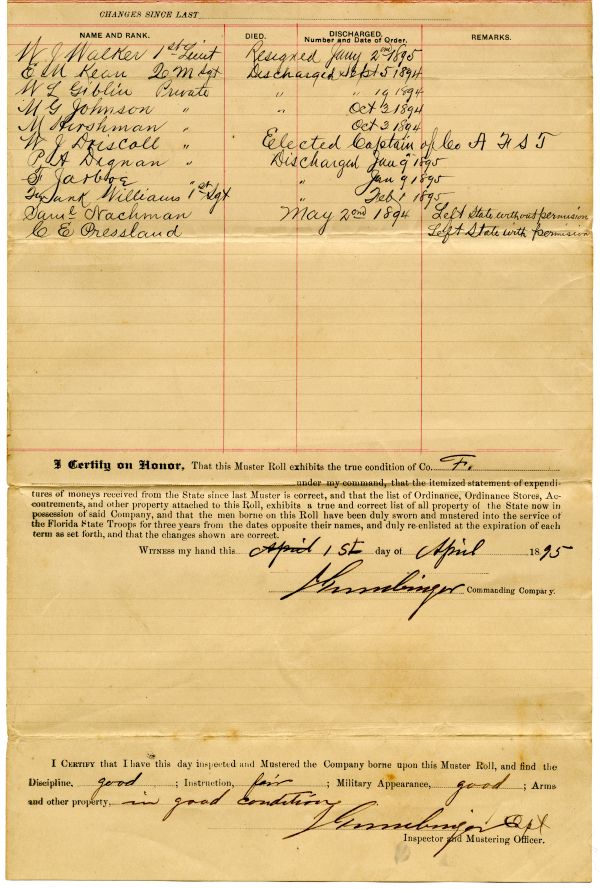 CHANGES SINCE LAST
NAME AND RANK. DIED. DISCHARGED, Number and Date of Order. REMARKS.
W J Walker 1st Lieut Resigned Jany 2nd 1895
E M Kean Q M Sgt Discharged Sept 5 1894
W L Giblin Private " " 19 1894
M G Johnson " " Oct 3 1894
M Hirshman " Oct 3 1894
W J Driscoll " Elected Captain of Co A F S T
P A Dignan " Discharged Jan 9 1895
F Jarboe " " Jan 9 1895
Frank Williams 1st Sgt " Feb 1 1895
Saml Nachman May 2nd 1894 Left State without permision
C E Pressland Left State with permision
I Certify on Honor, That this Muster Roll exhibits the true condition of Co. F.
under my command, that the itemized statement of expendi-
tures of moneys received from the State since last Muster is correct, and that the list of Ordinance, Ordinance Stores, Ac-
contrements, and other property attached to this Roll, exhibits a true and correct list of all property of the State now in
possession of said Company, and that the men borne on this Roll have been duly sworn and mustered into the service of
the Florida State Troops for three years from the dates opposite their names, and duly re-enlisted at the expiration of each
term as set forth, and that the changes shown are correct.
WITNESS my hand this April 1 St day of April 1895
Commanding Company.
I CERTIFY that I have this day inspected and Mustered the Company borne upon this Muster Roll, and find the
Discipline, good ; Instruction, fair ; Military Appearance, good ; Arms
and other property, in good condition
Capt
Inspector and Mustering Officer.